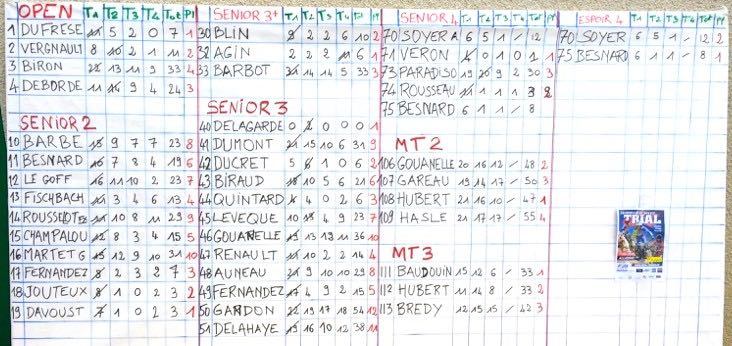 OPEN T1 T2 T3 T4 Tot Pl
1 DUFRESE 11 5 2 0 7 1
2 VERGNAULT 8 10 2 1 11 2
3 BIRON 22 13 11 9 33 4
4 DEBORDE 11 16 9 4 24 3
SENIOR 2
10 BARBE 18 9 7 7 23 8
11 BESNARD 16 7 8 4 19 6
12 LE GOFF 16 11 10 2 23 7
13 FISCHBACH 11 3 4 6 13 4
14 ROUSSELOT 21 10 8 11 29 9
15 CHAMPALOU 12 8 3 4 15 5
16 MARTET G 15 12 9 10 31 10
17 FERNANDEZ 8 2 3 2 7 3
18 JOUTEUX 8 1 0 2 3 2
19 DAVOUST 7 1 0 2 3 1
SENIOR 3+ T1 T2 T3 T4 Tot Pl
30 BLIN 9 2 2 6 10 2
32 AGIN 2 2 2 11 6 1
33 BARBOT 21 14 14 5 33 3
SENIOR 3
40 DELAGARDE 0 2 0 0 0 1
41 DUMONT 21 15 10 6 31 9
42 DUCRET 5 6 1 0 6 2
43 BIRAUD 18 10 5 6 21 6
44 QUINTARD 4 4 0 2 6 3
45 LEVEQUE 10 18 4 9 23 7
46 GOUANELLE 19 13 12 11 36 10
47 RENAULT 11 10 2 2 14 4
48 AUNEAU 21 9 10 10 29 8
49 FERNANDEZ 17 4 9 2 15 5
50 GANDON 22 19 17 18 54 12
51 DELAHAYE 19 16 10 12 38 11
SENIOR 4 T1 T2 T3 T4 Tot Pl
70 SOYER A 6 5 1 / 12
71 VERON 4 0 1 0 1 1
73 PARADISO 19 20 9 2 30 3
74 ROUSSEAU 11 1 1 1 3 2
75 BESNARD 6 1 1 / 8
MT2
106 GOUANELLE 20 16 12 / 48 2
107 GAREAU 19 14 17 / 50 3
108 HUBERT 21 16 10 / 47 1
109 HASLE 21 17 17 / 55 4
MT3
111 BAUDOUIN 15 12 6 / 33 1
112 HUBERT 11 14 8 / 33 2
113 BREDY 12 15 15 / 42 3
ESPOIR 4 T1 T2 T3 T4 Tot Pl
70 SOYER 6 5 1 / 12 2
75 BESNARD 6 1 1 / 8 1
TRIAL